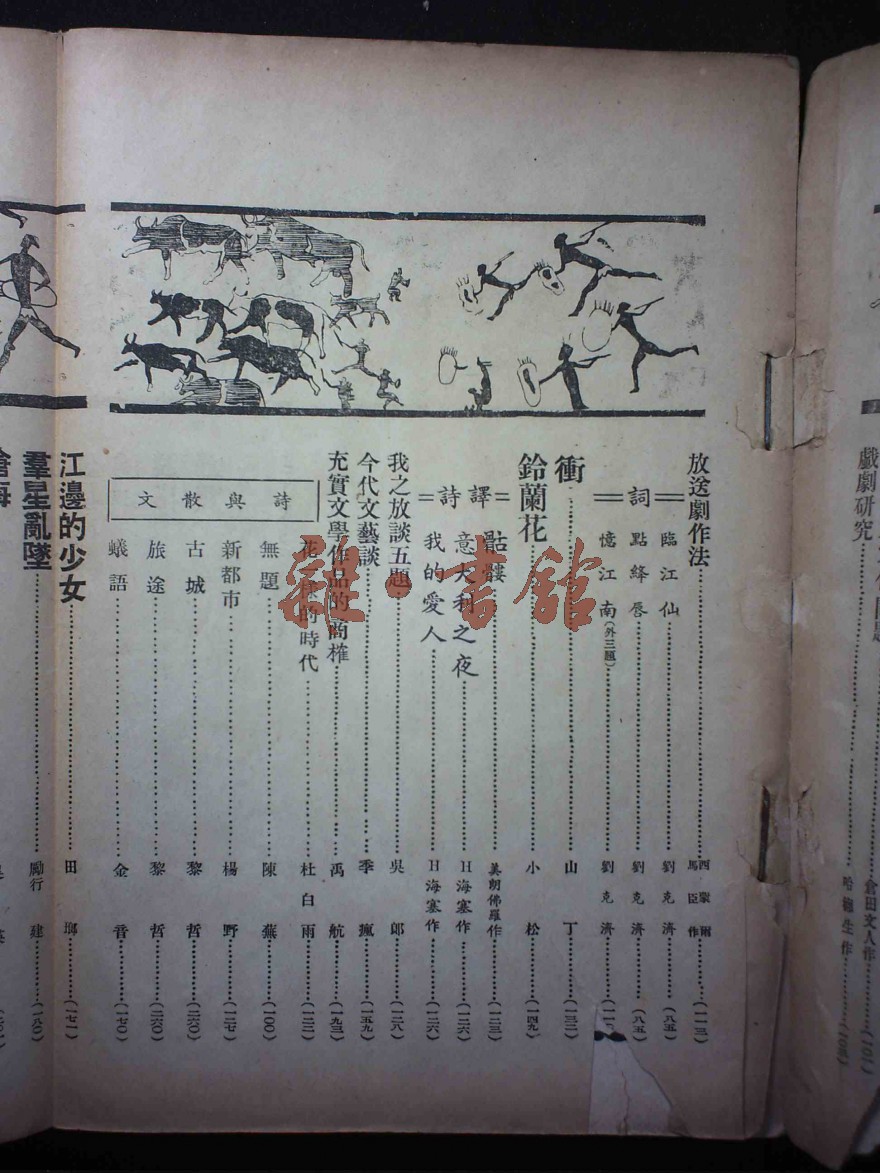 戲劇研究
倉田文人作
哈
生作
放送劇作法 西蒙爾馬臣作 (一一三)
=詞=
臨江仙 劉克濟 (八五)
點絳唇 劉克濟 (八五)
憶江南(外三題) 劉克濟
衝 山丁 (一三二)
鈴蘭花 小松 (一四九)
=譯詩=
骷髏 美朗佛羅作 (一二三)
意大利之夜 H海塞作 (一二六)
我的愛人 H海塞作 (一二六)
我之放談五題 吳郎 (一二八)
今代文藝談 季瘋 (一五九)
充實文學作品的商榷 禹航 (一九三)
詩與散文
花一樣的時代 杜白雨 (一二二)
無題 陳蕪 (一〇〇)
新都市 楊野 (一二七)
古城 黎哲 (二六〇)
旅途 黎哲 (二六〇)
蟻語 金音 (一七〇)
江邊的少女 田瑯 (一七一)
羣星亂墜 勵行建 (一八〇)
滄海
雜·書館